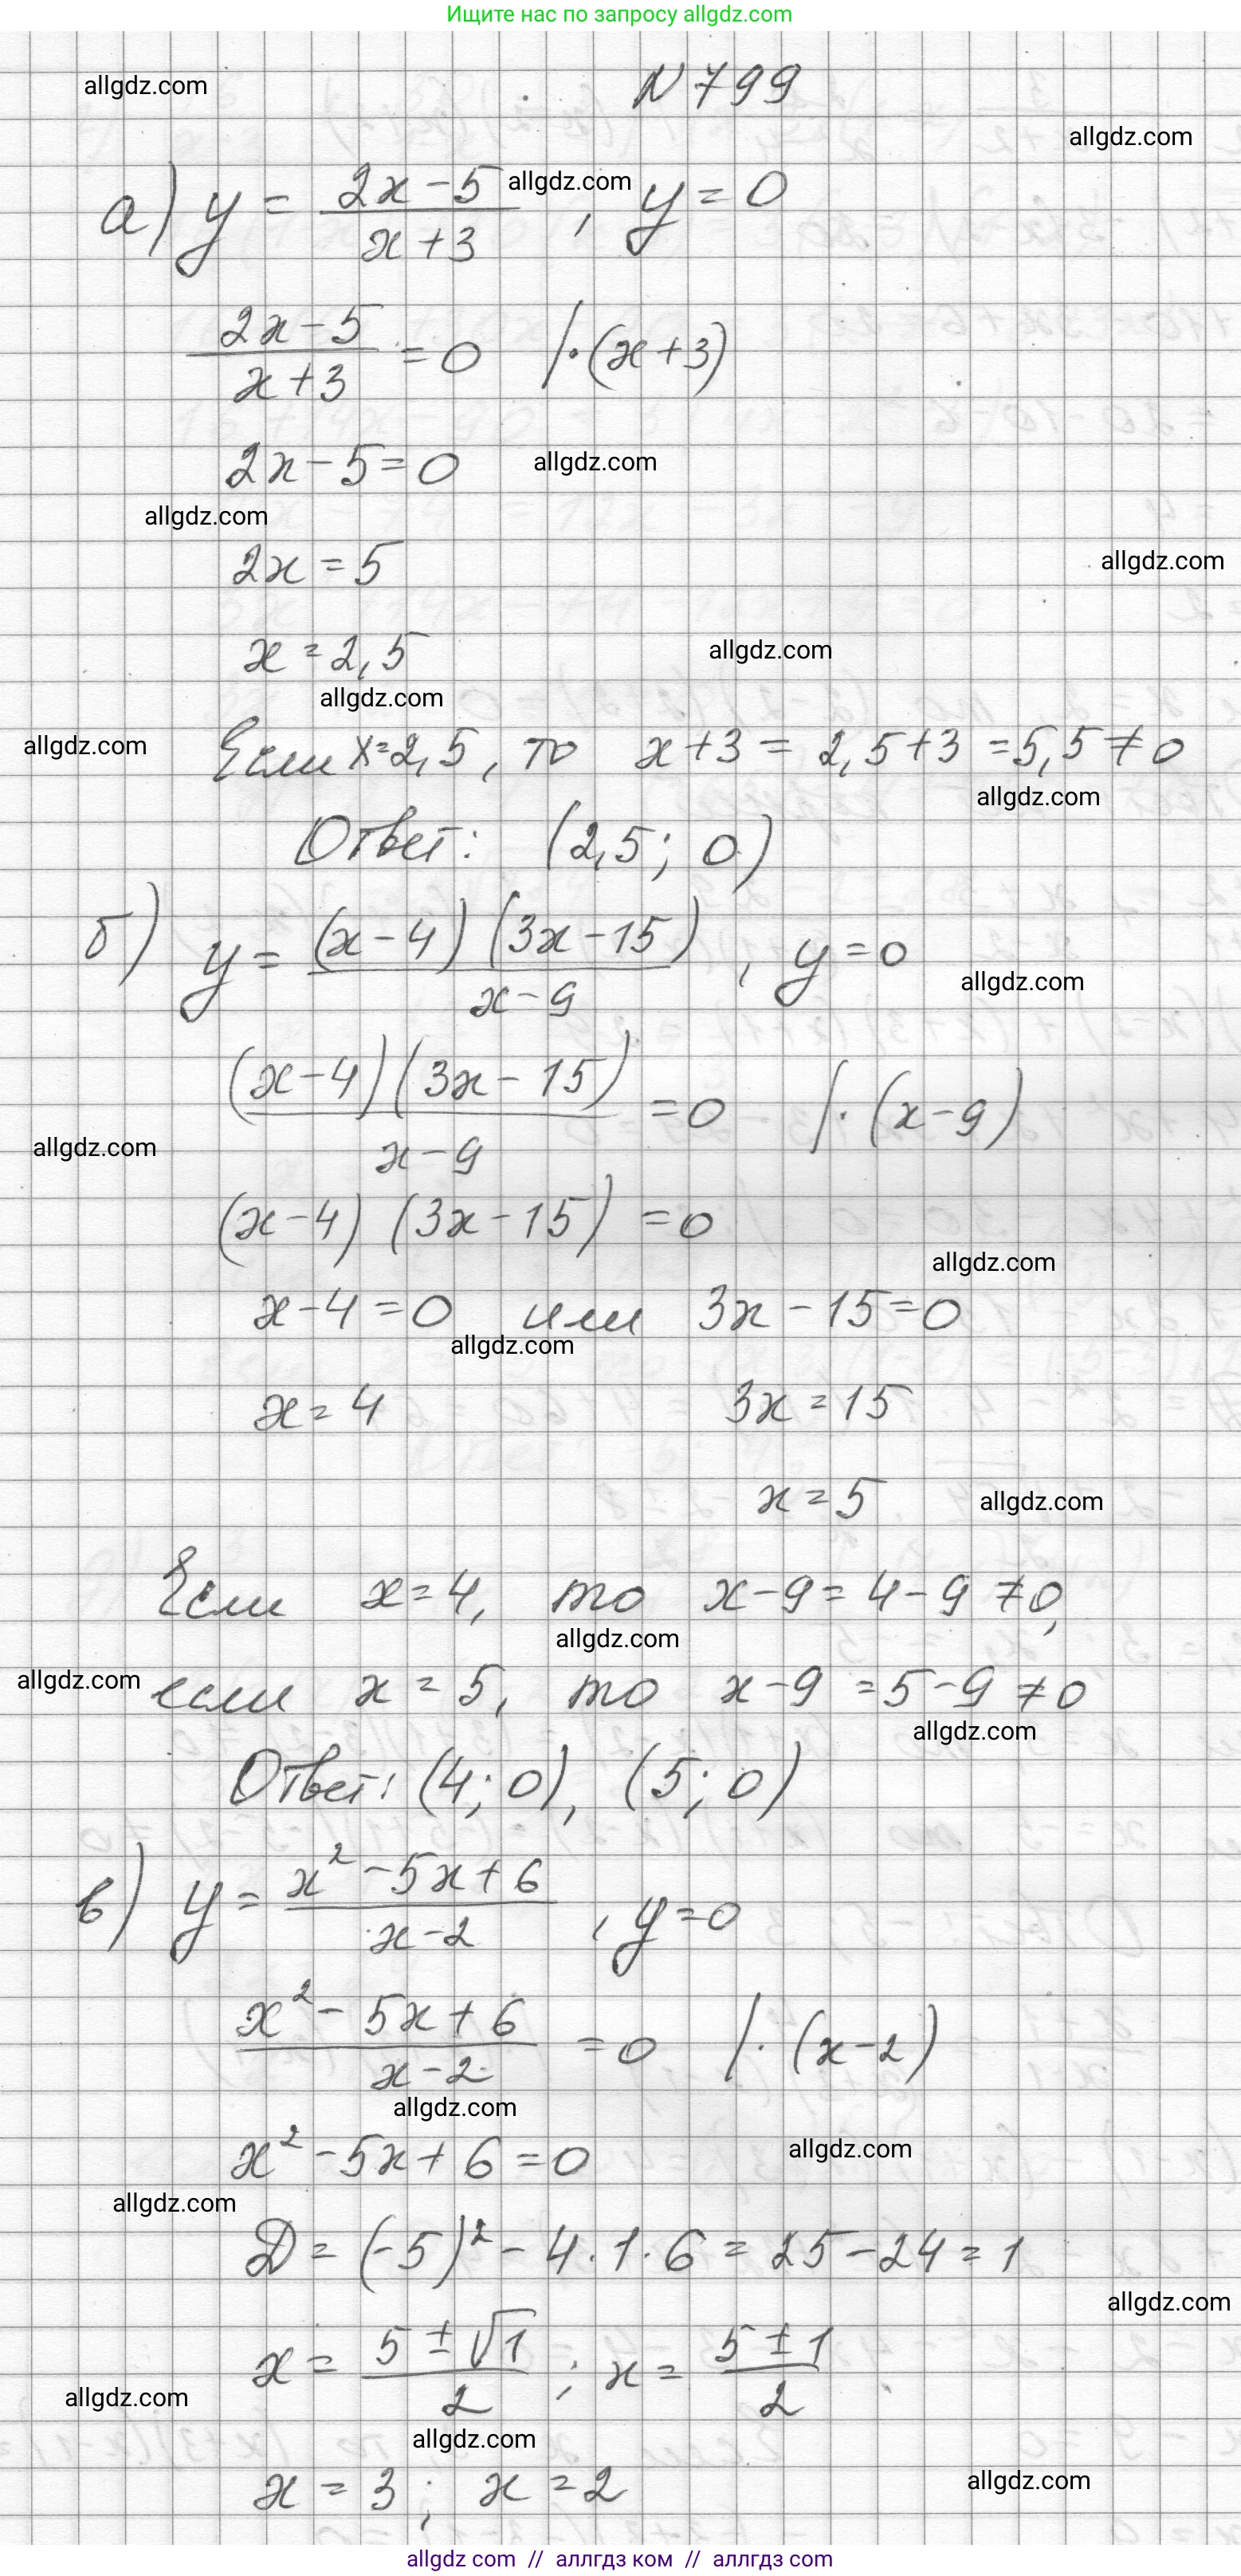 Ищите нас по запросу allgdz.com
allgdz.com
N 799
allgdz.com
а) y = (2x-5)/(x+3) allgdz.com , y = 0
(2x-5)/(x+3) = 0 /·(x+3)
2x-5=0 allgdz.com
allgdz.com
2x = 5 allgdz.com
x = 2,5 allgdz.com
allgdz.com
allgdz.com Если x=2,5, то x+3 = 2,5+3 =5,5 ≠0
allgdz.com
Ответ: (2,5; 0)
б) y = ((x-4)(3x-15))/(x-9) , y=0
allgdz.com
((x-4)(3x-15))/(x-9) =0 /·(x-9)
allgdz.com
(x-4) (3x-15) =0
allgdz.com
x-4=0 или 3x-15=0
allgdz.com
x=4 3x=15
x=5 allgdz.com
Если x=4, то x-9=4-9 ≠0,
allgdz.com
allgdz.com если x=5, то x-9 =5-9 ≠0
allgdz.com
Ответ: (4; 0), (5; 0)
в) y = (x²-5x+6)/(x-2) , y=0
(x²-5x+6)/(x-2) =0 /·(x-2)
allgdz.com
x²-5x+6=0 allgdz.com
allgdz.com
D = (-5)² - 4·1·6 = 25-24=1
allgdz.com
x = (5±√1)/2 ; x = (5±1)/2
allgdz.com
allgdz.com
x = 3; x =2 allgdz.com
allgdz com // аллгдз ком // аллгдз com